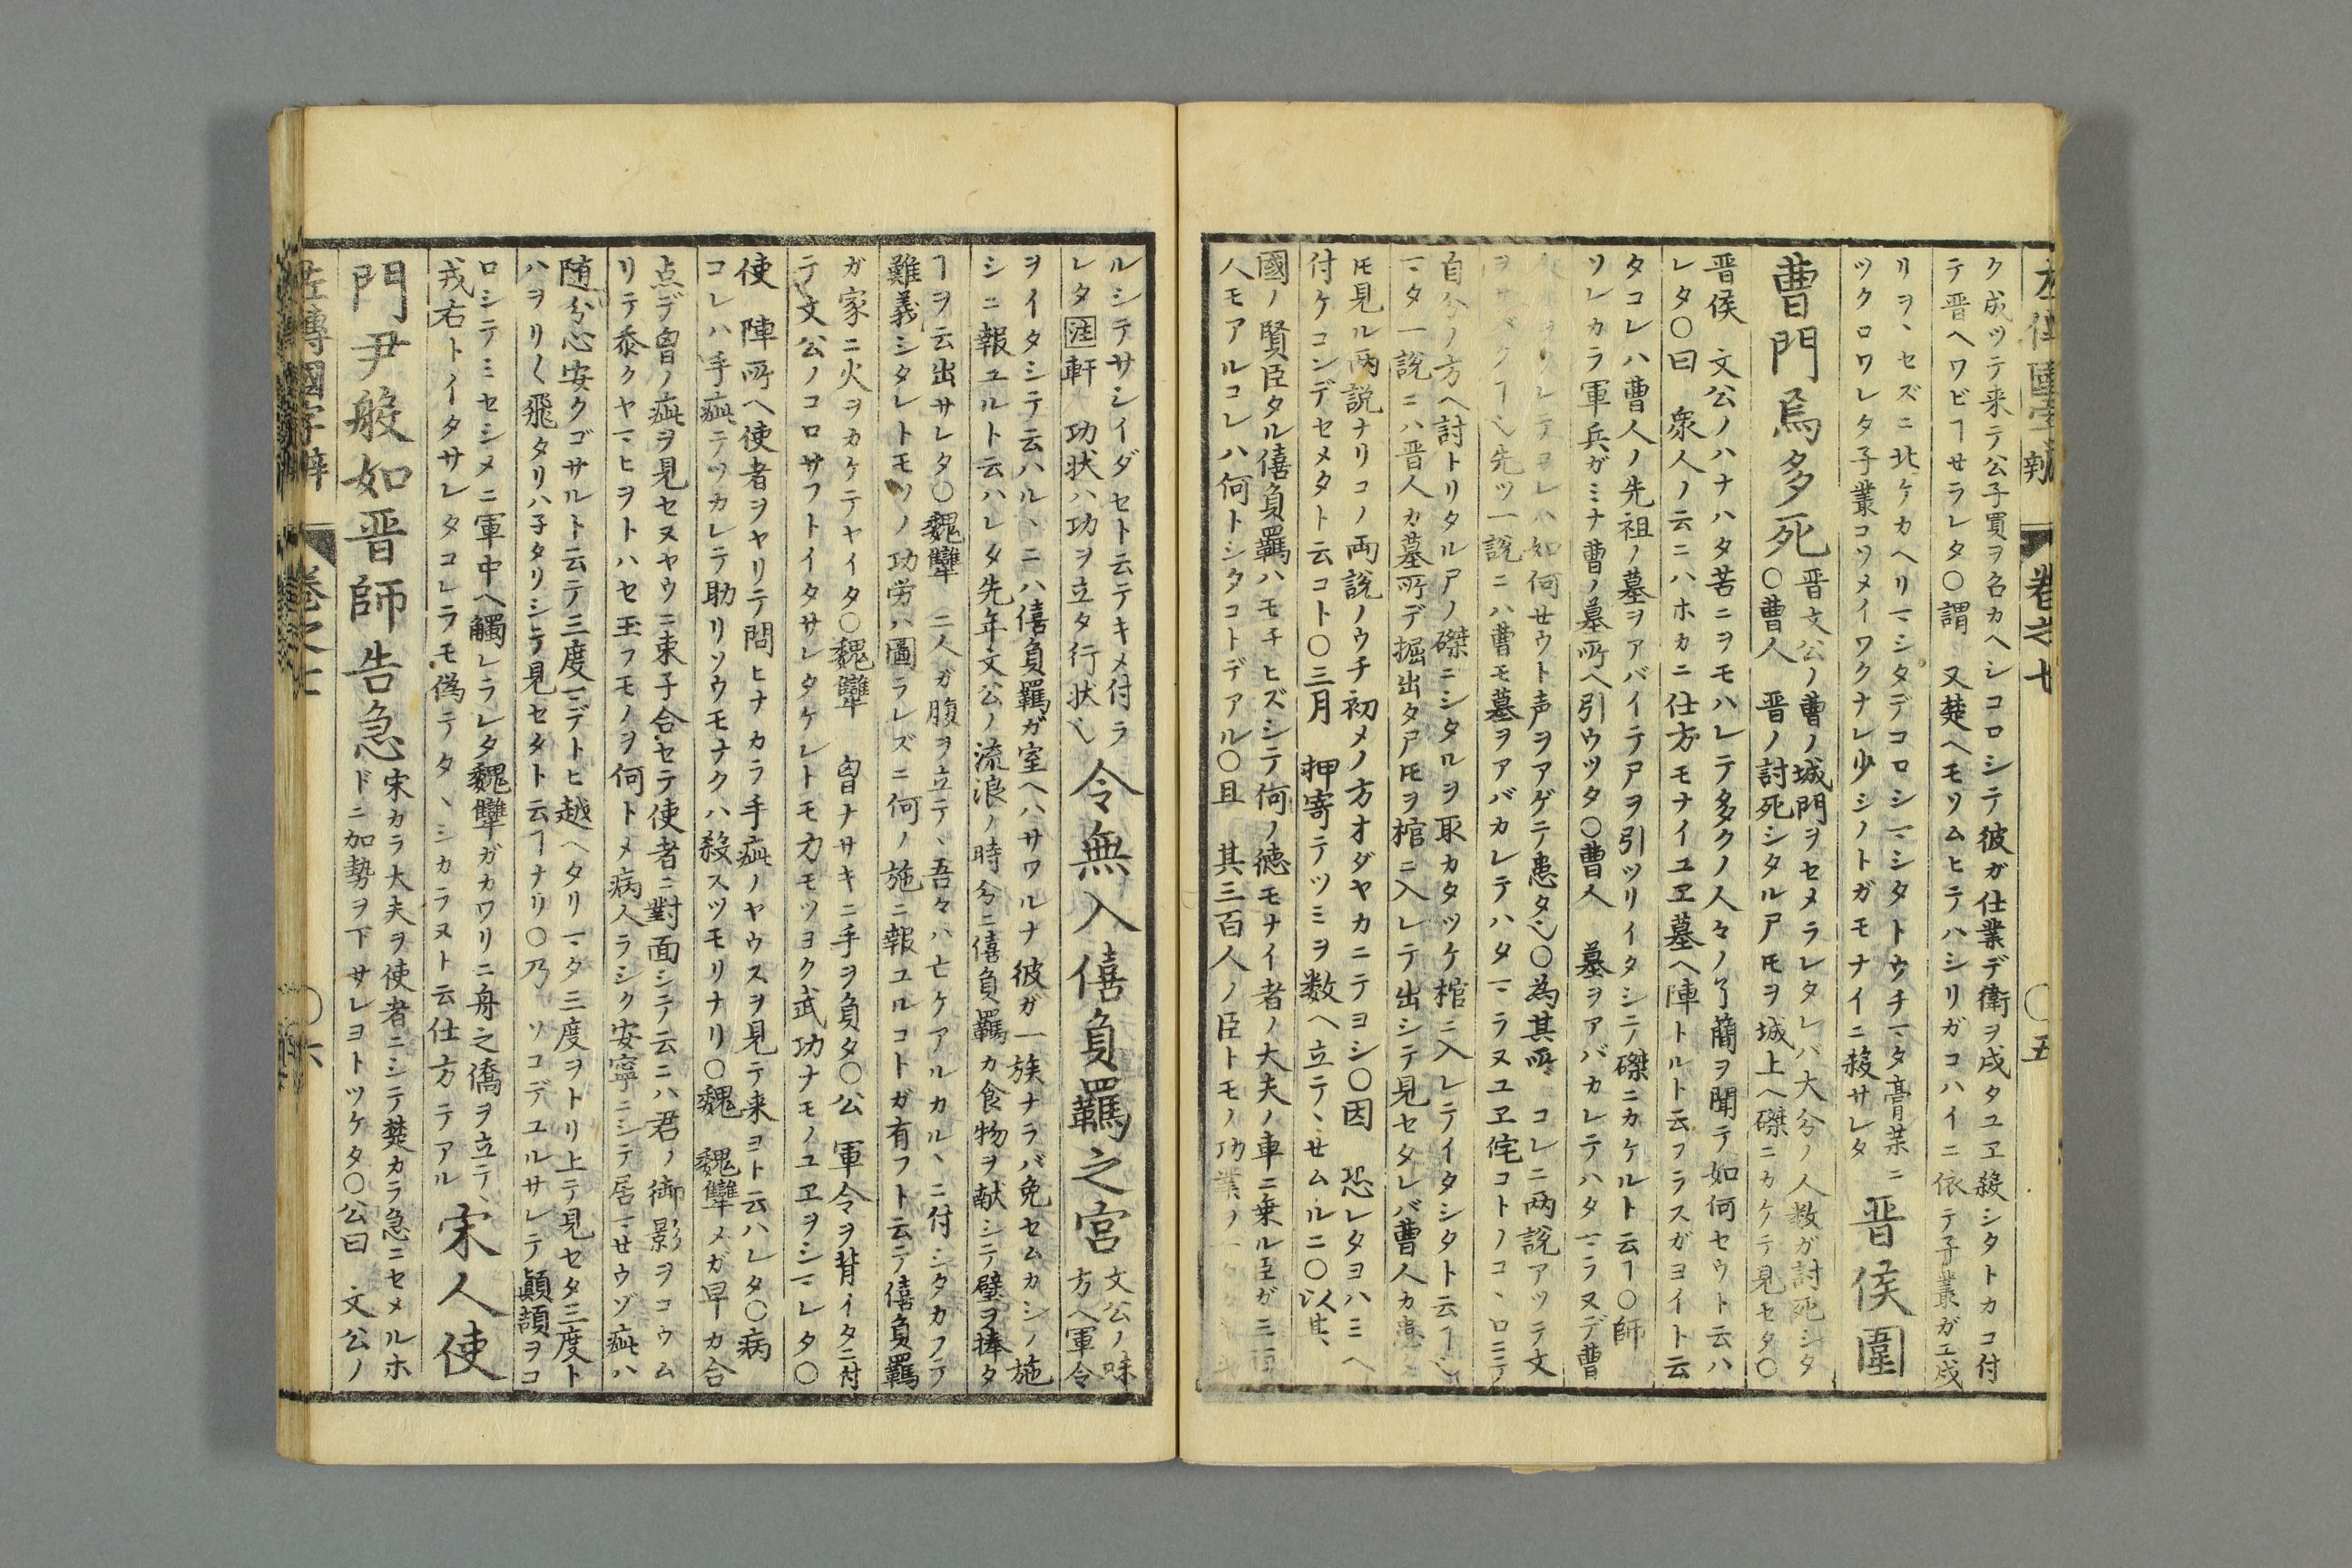 左傳國字辨 卷之七 〇五
ク成ツテ来テ公子買ヲ名カヘシコロシテ彼ガ仕業デ衛ヲ戍タユヱ殺シタトカコ付
テ晋ヘワビヿセラレタ〇謂 又楚ヘモソムヒテハシリガコハイニ依テ子叢ガヱ戍
リヲヽセズニ北ケカヘリマシタデコロシマシタトウチマタ
ツクロワレタ子叢コソメイワクナレ少シノトガモナイニ殺サレタ
晋侯圍
曹門焉多死
晋文公ノ曹ノ城門ヲセメラレタレバ大分ノ人数ガ討死シタ
〇曹人 晋ノ討死シタル尸𪜈ヲ城上ヘ磔ニカケテ見セタ〇
晋侯 文公ノハナハタ苦ニヲモハレテ多クノ人々ノ了簡ヲ聞テ如何セウト云ハ
レタ〇曰 衆人ノ云ニハホカニ仕方モナイユヱ墓ヘ陣トルト云フラスガヨイト云
タコレハ曹人ノ先祖ノ墓ヲアバイテ尸ヲ引ツリイタシテ磔ニカケルト云ヿ〇師
ソレカラ軍兵ガミナ曹ノ墓所ヘ引ウツタ〇曹人 墓ヲアバカレテハタマラヌデ曹
如何セウト声ヲアゲテ患タ也〇為其所 コレニ両説アツテ文
先ツ一説ニハ曹モ墓ヲアバカレテハタマラヌユヱ侘コトノコヽロニテ
自分ノ方ヘ討トリタル尸ノ磔ニシタルヲ取カタツケ棺ニ入レテイタシタト云ヿ也
マタ一説ニハ晋人カ墓所デ掘出タ尸𪜈ヲ棺ニ入レテ出シテ見セタレバ曹人カ患
𪜈見ル両説ナリコノ両説ノウチ初メノ方オダヤカニテヨシ〇因 恐レタヨハミヘ
付ケコンデセメタト云コト〇三月 押寄テツミヲ数ヘ立テヽセムルニ〇以其、
國ノ賢臣タル僖負羈ハモチヒズシテ何ノ徳モナイ者ノ大夫ノ車ニ乗ル至ガ三百
人モアルコレハ何トシタコトデアル〇且 其三百人ノ臣トモノ功業ノ
ルシテサシイダセト云テキメ付ラ
レタ注軒 功状ハ功ヲ立タ行状也
令無入僖負羈之宮
文公ノ味
方ヘ軍令
ヲイタシテ云ハルヽニハ僖負羈ガ室ヘハサワルナ彼ガ一族ナラバ免セムカシノ施
シニ報ユルト云ハレタ先年文公ノ流浪ノ時分ニ僖負羈カ食物ヲ献シテ璧ヲ捧タ
ヿヲ云出サレタ〇魏犫 二人ガ腹ヲ立テヽ吾々ハ亡ケアルカルヽニ付シタカフテ
難義シタレトモソノ功労ハ圖ラレズニ何ノ施ニ報ユルコトガ有フト云テ僖負羈
ガ家ニ火ヲカケテヤイタ〇魏犫 胷ナサキニ手ヲ負タ〇公 軍令ヲ背イタニ付
テ文公ノコロサフトイタサレタケレトモ力モツヨク武功ナモノユヱヲシマレタ〇
使 陣所ヘ使者ヲヤリテ問ヒナカラ手疵ノヤウスヲ見テ来ヨト云ハレタ〇病
コレハ手疵ニテツカレテ助リソウモナクハ殺スツモリナリ〇魏 魏犫メガ早カ合
点デ胷ノ疵ヲ見セヌヤウニ束子合セテ使者ニ對面シテ云ニハ君ノ御影ヲコウム
リテ忝クヤマヒヲトハセ玉フモノヲ何トメ病人ラシク安寧ニシテ居マセウゾ疵ハ
随分心安クゴサルト云テ三度マデトヒ越ヘタリマタ三度ヲトリ上テ見セタ三度ト
ハヲリ〱飛タリハ子タリシテ見セタト云ヿナリ〇乃 ソコデユルサレテ顛頡ヲコ
ロシテミセシメニ軍中ヘ觸レラレタ魏犫ガカワリニ舟之僑ヲ立テヽ
戎右トイタサレタコレラモ偽テタヽシカラヌト云仕方テアル
宋人使
門尹般如晋師告急
宋カラ大夫ヲ使者ニシテ楚カラ急ニセメルホ
ドニ加勢ヲ下サレヨトツケタ〇公曰 文公ノ
左傳國字辨 卷之七 〇六